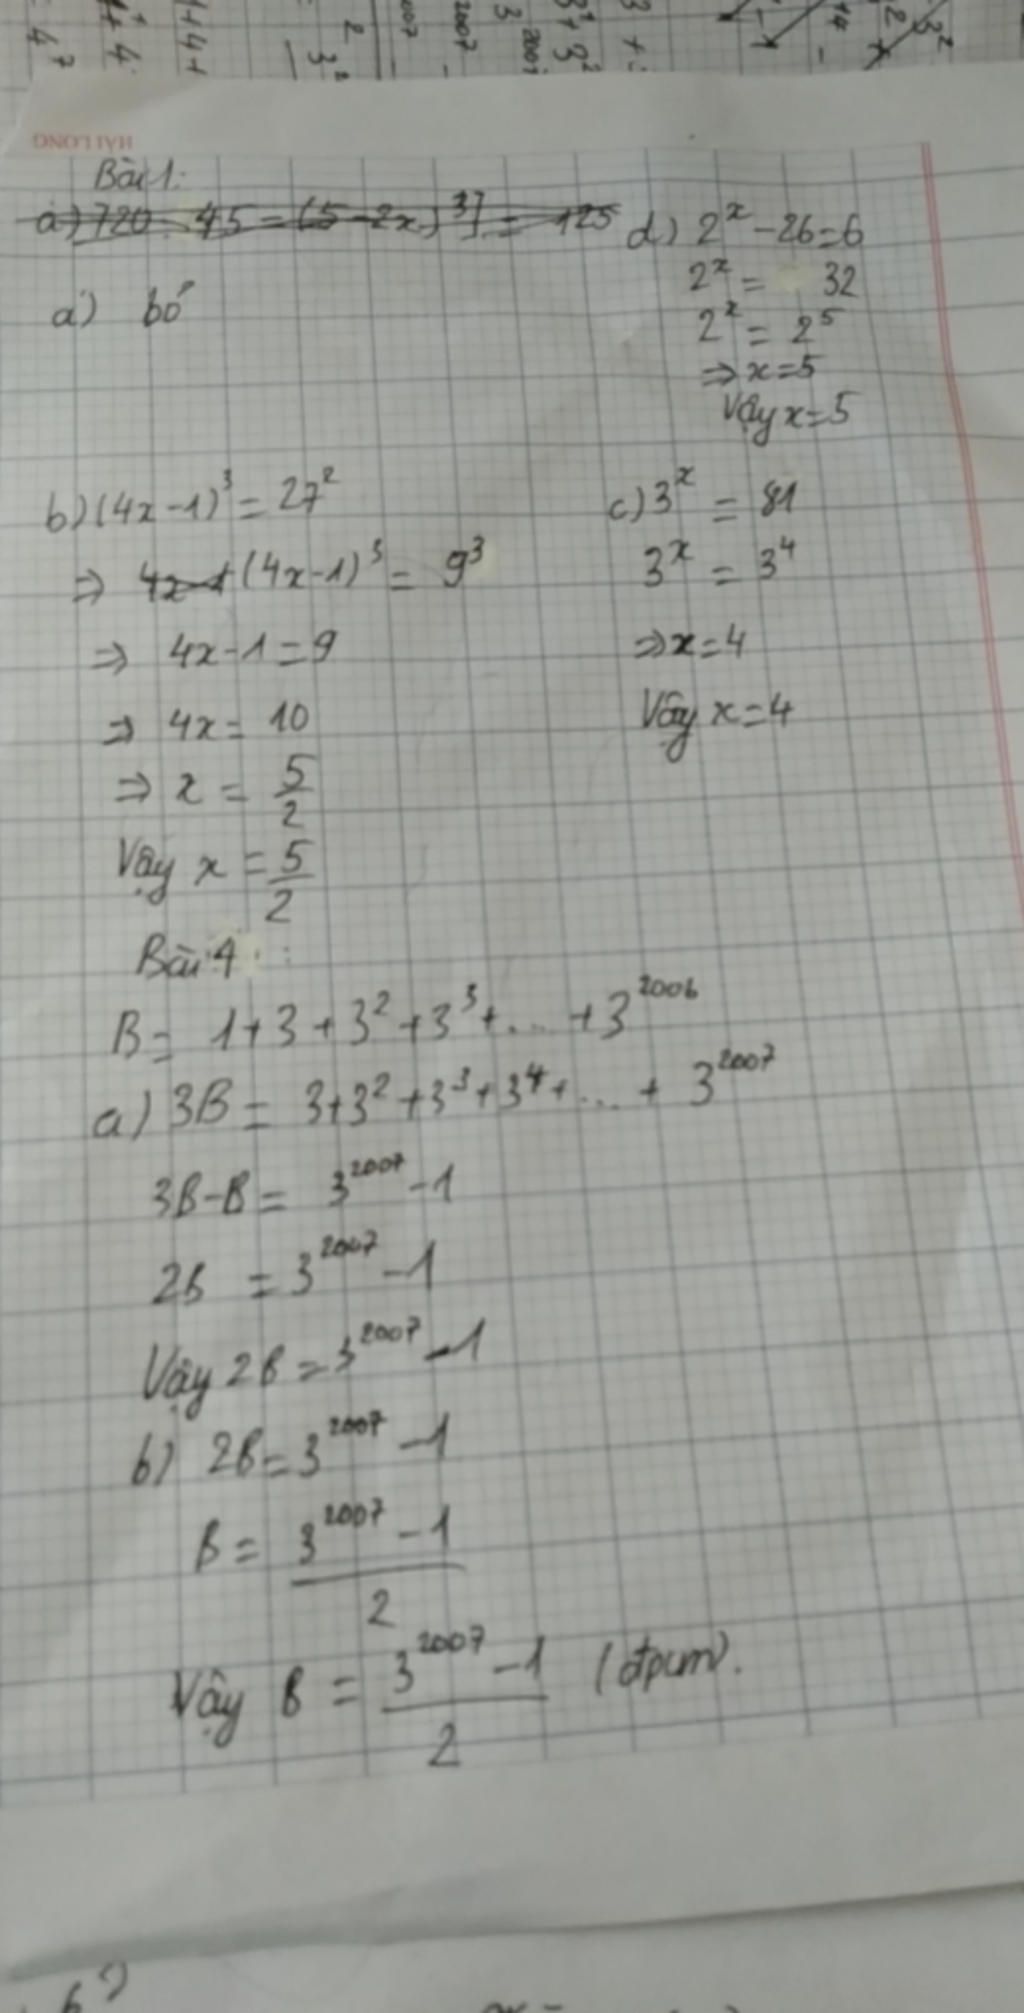 HẢI LONG
Bài 1:
a) 720 : 45 = (5 - 2x)³] = 125
a) bỏ
d) 2ˣ - 26 = 6
2ˣ = 32
2ˣ = 2⁵
⇒ x = 5
Vậy x = 5
b) (4x - 1)³ = 27²
⇒ 4x - 1 (4x - 1)³ = 9³
⇒ 4x - 1 = 9
⇒ 4x = 10
⇒ x = 5/2
Vậy x = 5/2
c) 3ˣ = 81
3ˣ = 3⁴
⇒ x = 4
Vậy x = 4
Bài 4 :
B = 1 + 3 + 3² + 3³ + ... + 3²⁰⁰⁶
a) 3B = 3 + 3² + 3³ + 3⁴ + ... + 3²⁰⁰⁷
3B - B = 3²⁰⁰⁷ - 1
2B = 3²⁰⁰⁷ - 1
Vậy 2B = 3²⁰⁰⁷ - 1
b) 2B = 3²⁰⁰⁷ - 1
B = (3²⁰⁰⁷ - 1)/2
Vậy B = (3²⁰⁰⁷ - 1)/2 (đpcm).